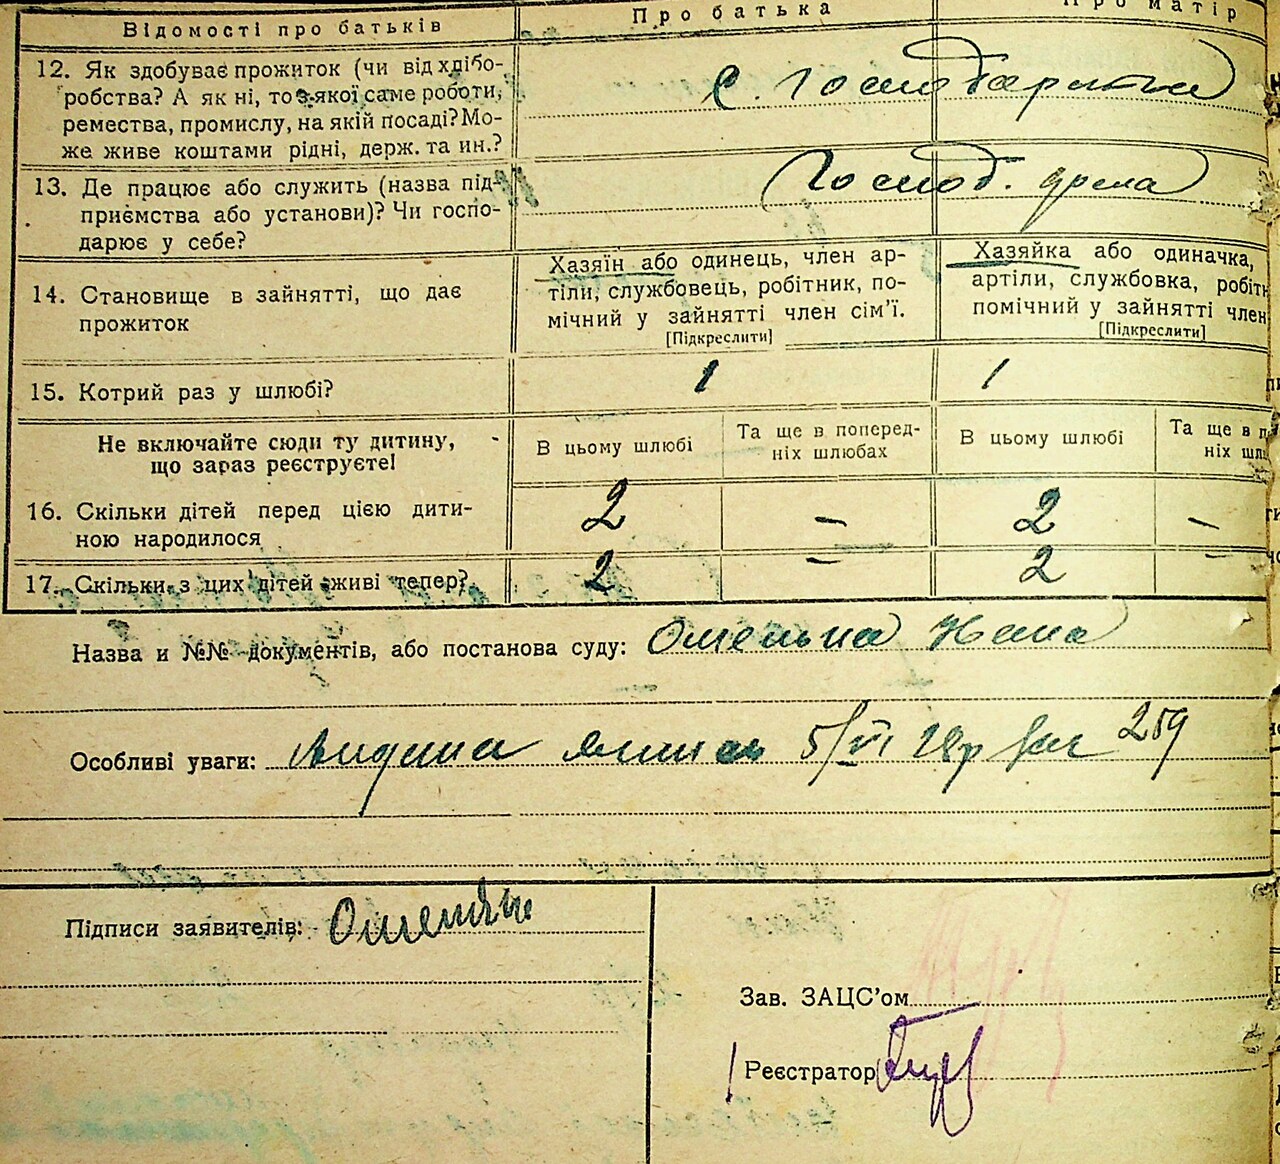 Відомості про батьків
Про батька
Про матір
12. Як здобуває прожиток (чи від хлібо-
робства? А як ні, то з якої саме роботи,
ремества, промислу, на якій посаді? Мо-
же живе коштами рідні, держ. та ин.?
С. Господарство
13. Де працює або служить (назва під-
приємства або установи)? Чи госпо-
дарює у себе?
Господ.
14. Становище в зайнятті, що дає
прожиток
Хазяїн або одинець, член ар-
тіли, службовець, робітник, по-
мічний у зайнятті член сім'ї.
[Підкреслити]
Хазяйка або одиначка,
артіли, службовка, робітн
помічний у зайнятті член
[Підкреслити]
15. Котрий раз у шлюбі?
1
1
Не включайте сюди ту дитину,
що зараз реєструєте!
В цьому шлюбі
Та ще в поперед-
ніх шлюбах
В цьому шлюбі
Та ще в п
ніх шл
16. Скільки дітей перед цією дити-
ною народилося
2 – 2 –
17. Скільки з цих дітей живі тепер?
2 – 2 –
Назва и №№ документів, або постанова суду:
Особливі уваги: 5/VI 28р 259
Підписи заявителів:
Зав. ЗАЦС'ом
Реєстратор